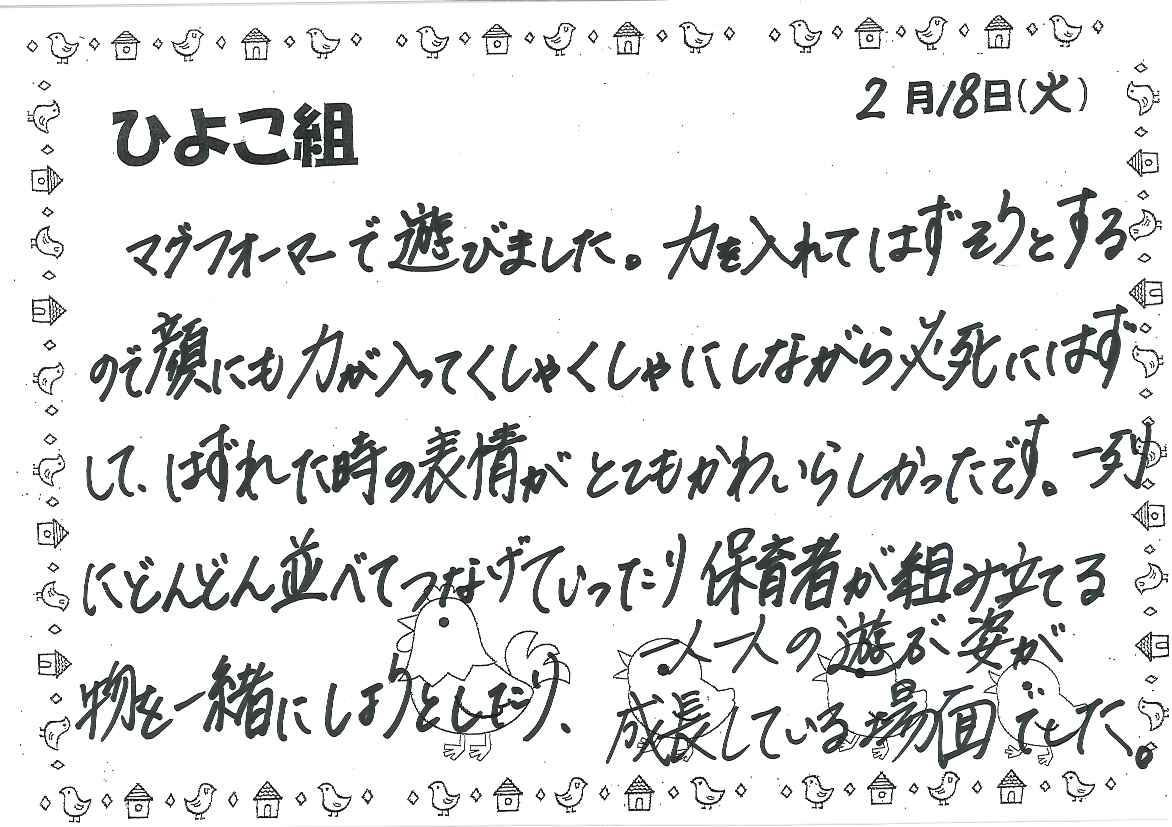 2月18日(火)
ひよこ組
マグフォーマーで遊びました。力を入れてはずそうとする
ので顔にも力が入ってくしゃくしゃにしながら必死にはず
して、はずれた時の表情がとてもかわいらしかったです。一列
にどんどん並べてつなげていったり保育者が組み立てる
物を一緒にしようとしたり、
一人一人の遊ぶ姿が
成長している場面でした。